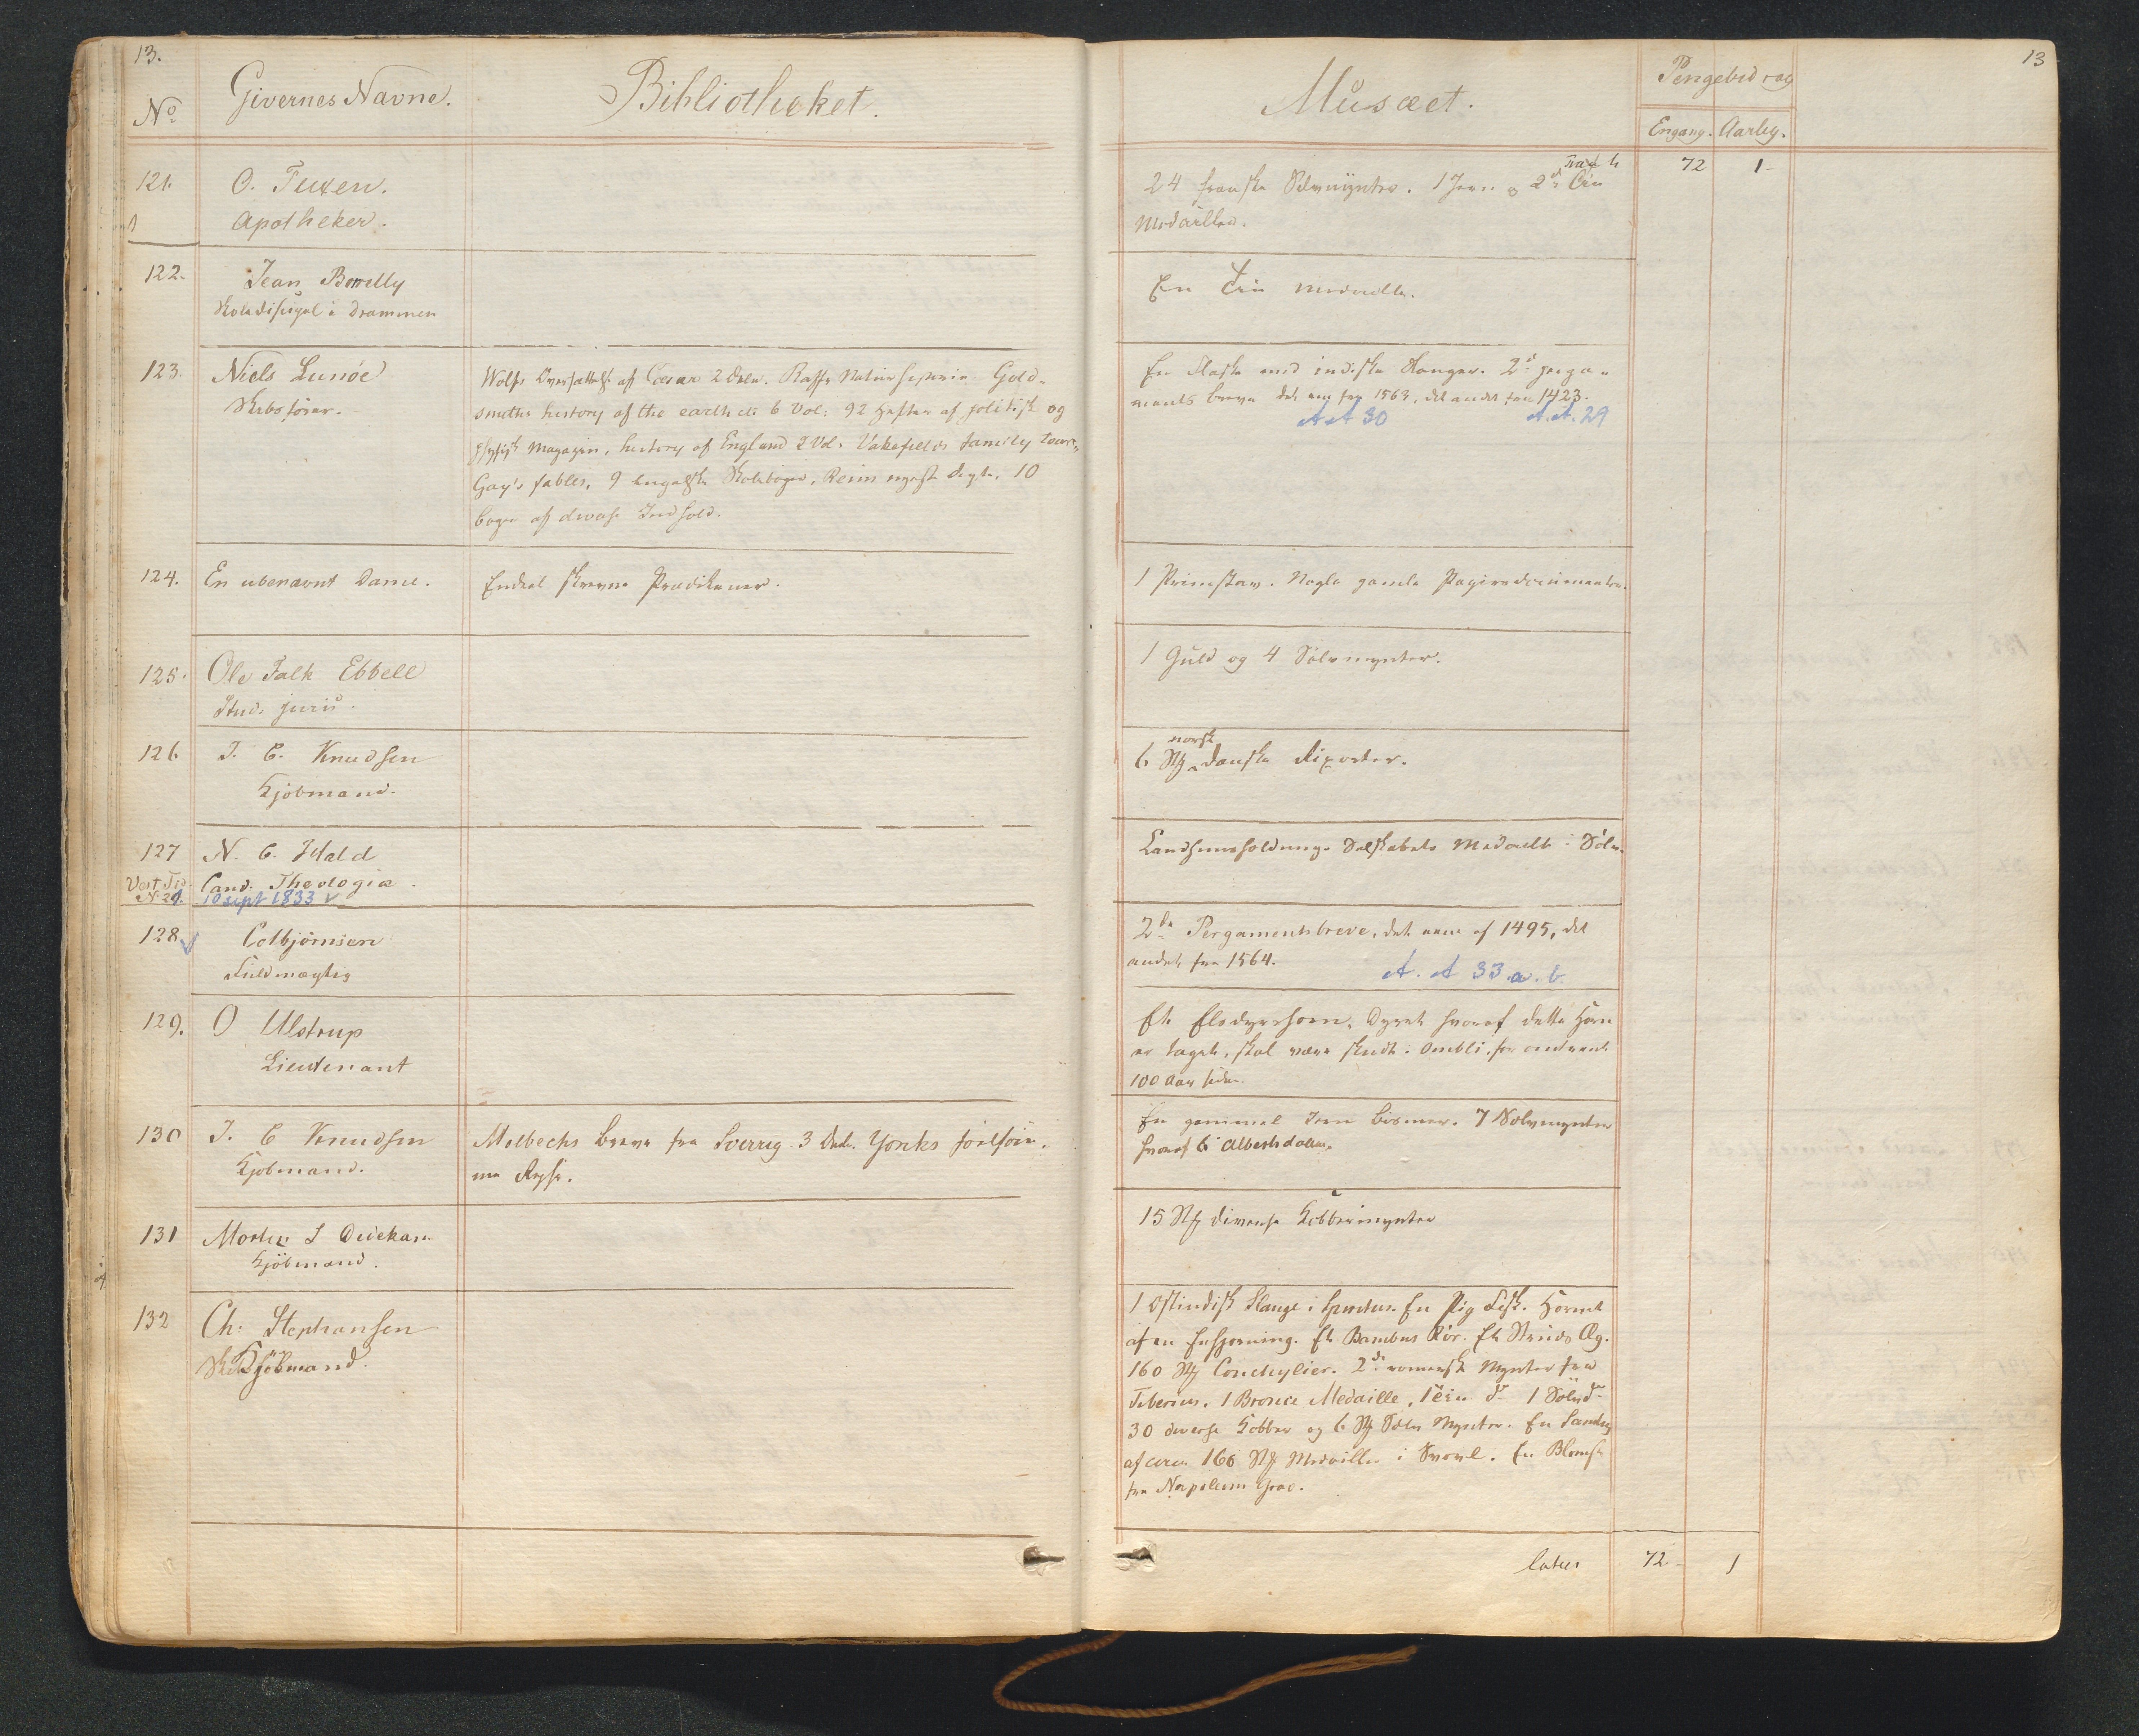 13.
13
No
Givernes Navne.
Bibliotheket.
Musæet.
Pengebidrag
Engang. Aarlig.
121.
O. Tuxen.
Apotheker.
24 franske Sølvmynter. 1 Jern og 2de Tin
Medailler.
72 1-
122.
Jean
i Drammen
En Tin Medaille.
123.
Niels Lunöe
Skibsfører.
Wolfs Oversættelse af Cæsar 2 Dele. Raffs Naturhistorie. Gold-
smiths history of the earth etc 6 Vol: 92 Hefter af politisk og
physisk Magazin, history of England 2 Vol. Vakefields family tour,
Gay's fables, 9 engelske Skolebøger, Reins nyeste Digte, 10
bøger af diverse Indhold.
En Flaske med indiske Slanger. 2de perga-
ments breve det ene fra 1563, det andet fra 1423.
A A 30 A. A. 29
124.
En ubenævnt Dame.
Endeel skrevne Prædikener.
1 Primstav. Nogle gamle Papirsdocumenter.
125.
Ole Falk Ebbell
Stud: juris.
1 Guld og 4 Sølvmynter.
126
J. C. Knudsen
Kjøbmand.
norsk
6 Stk danske Rixorter.
127
N. C. Hald
Cand: Theologiæ.
Vest Tid
No 29.
10 sept 1833 v
Landhuusholdnings Selskabets Medaille i Sølv.
128
Colbjörnsen
Fuldmægtig
2de Pergamentsbreve, det ene af 1495, det
andet fra 1564.
A. A 33. a. b.
129.
O Ulstrup
Lieutenant
Et Elsdyrshorn, Dyret hvoraf dette Horn
er taget, skal være skudt i Ombli for omtrent
100 Aar siden.
130
J. C Knudsen
Kjøbmand.
Molbechs Breve fra Sverrig 3 Dele. Yoriks følsom-
me Reise.
En gammel Jern Bismer. 7 Sølvmynter
hvoraf 6 Albertsdaler.
131
Morten S
Kjöbmand.
15 Stk diverse Kobbermynter
132
Ch. Stephansen
Kjöbmand.
1 Ostindisk Slange i Spiritus. En Fisk. Hornet
af en Enhjørning. Et Bambus Rör. Et Struds Æg.
160 Stk Conchylier. 2de romerske Mynter fra
Tiberius. 1 Bronce Medaille, 1 Tin do 1 Sölv do
30 diverse Kobber og 6 Stk Sølv Mynter. En Samling
af circa 160 Stk Medailler i Svovl. En Blomst
fra Napoleons Grav.
Latus 72- 1